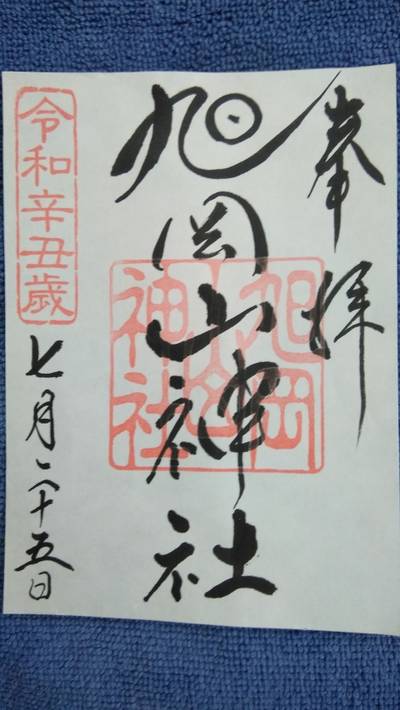 奉拝
旭岡山神社
旭岡山神社
令和辛丑歳
七月二十五日